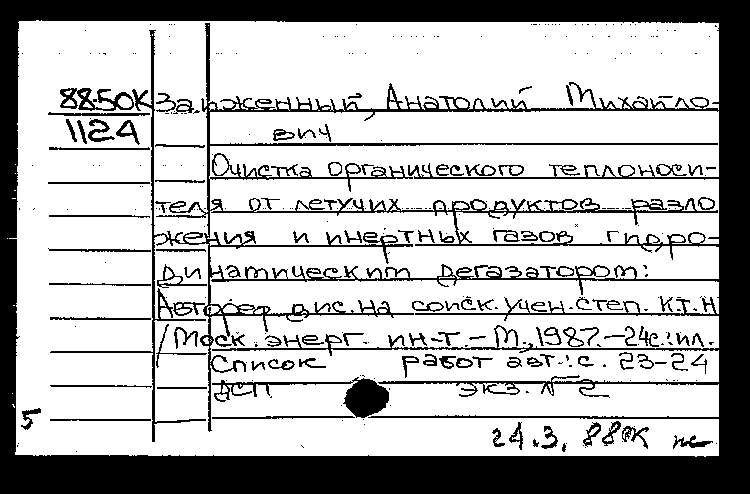 88-50К Занженный, Анатолий Михайло-
1124 вич
Очистка органического теплоноси-
теля от летучих продуктов разло
жения и инертных газов гидро-
динамическим дегазатором:
Автореф дис. на соиск. учен. степ. к.т.н
/Моск. энерг. ин-т. - М., 1987. - 24с.: ил.
Список работ авт.: с. 23-24
ДСП экз. № 2
5
24.3.88